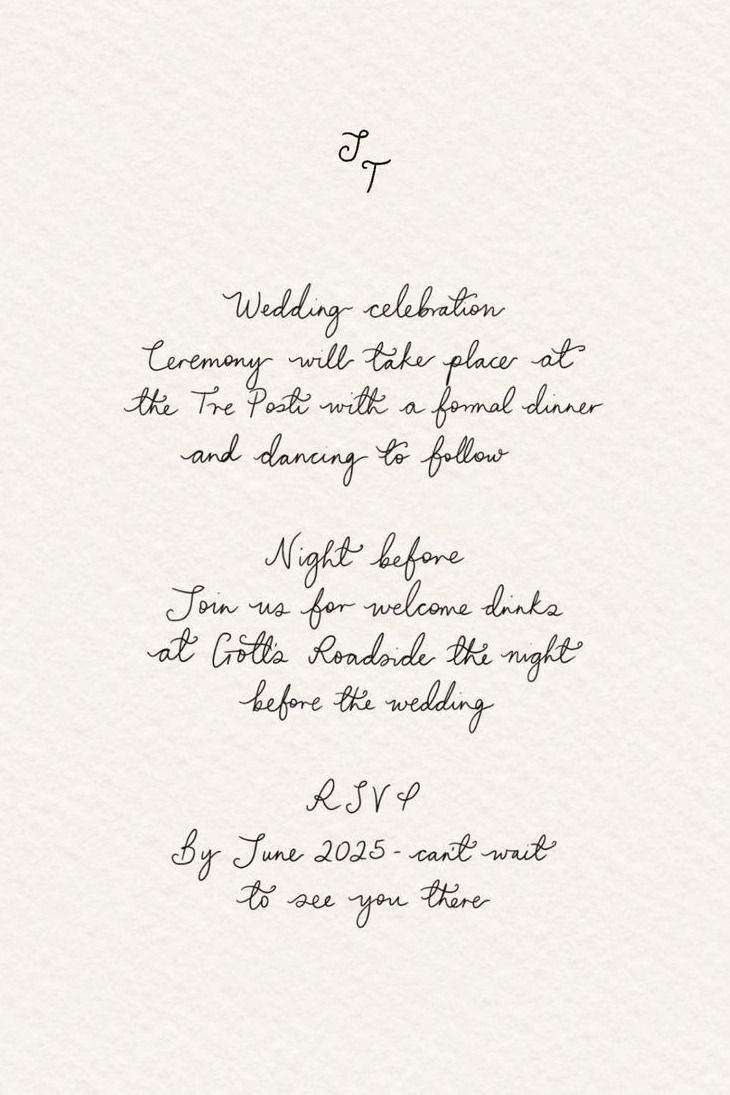 J
T
Wedding celebration
Ceremony will take place at
the Tre Posti with a formal dinner
and dancing to follow
Night before
Join us for welcome drinks
at Gott's Roadside the night
before the wedding
RSVP
By June 2025 - can't wait
to see you there